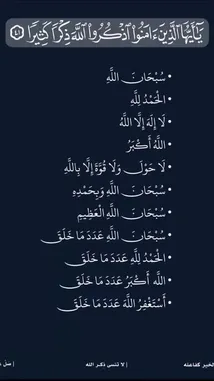 يَٰٓأَيُّهَا ٱلَّذِينَ ءَامَنُوا۟ ٱذْكُرُوا۟ ٱللَّهَ ذِكْرًا كَثِيرًا ﴿٤١﴾
• سُبْحَانَ اللَّهِ
• الْحَمْدُ لِلَّهِ
• لَا إِلَهَ إِلَّا اللَّهُ
• اللَّهُ أَكْبَرُ
• لَا حَوْلَ وَلَا قُوَّةَ إِلَّا بِاللَّهِ
• سُبْحَانَ اللَّهِ وَبِحَمْدِهِ
• سُبْحَانَ اللَّهِ الْعَظِيمِ
• سُبْحَانَ اللَّهِ عَدَدَ مَا خَلَقَ
• الْحَمْدُ لِلَّهِ عَدَدَ مَا خَلَقَ
• اللَّهُ أَكْبَرُ عَدَدَ مَا خَلَقَ
• أَسْتَغْفِرُ اللَّهَ عَدَدَ مَا خَلَقَ
الخير كفاعله | لا تنسى ذكر الله |